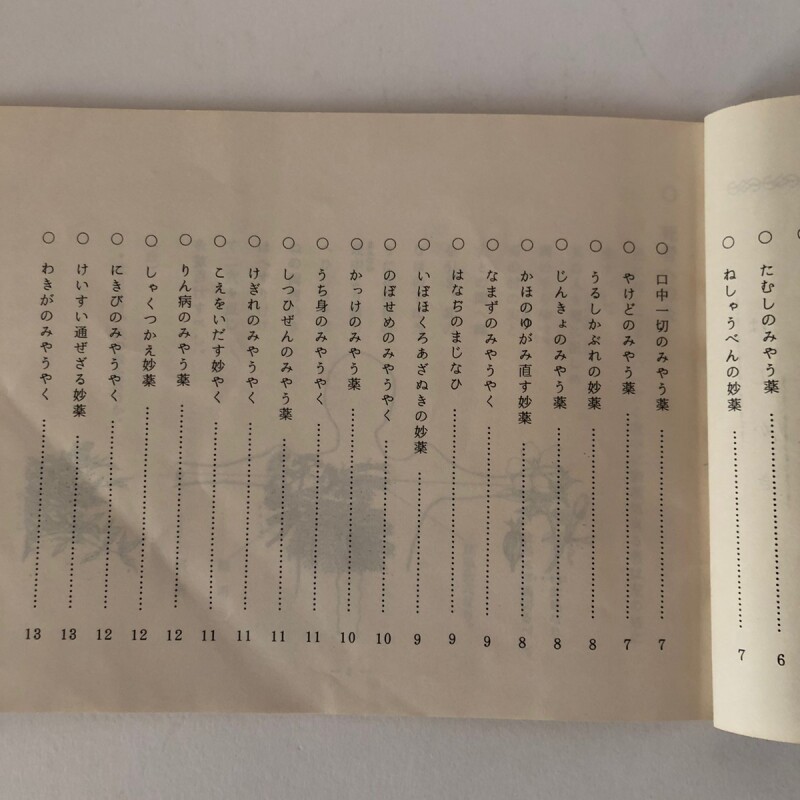 ○ たむしのみやう薬 6
○ ねしゃうべんの妙薬 7
○ 口中一切のみやう薬 7
○ やけどのみやう薬 7
○ うるしかぶれの妙薬 8
○ じんきょのみやう薬 8
○ かほのゆがみ直す妙薬 8
○ なまずのみやうやく 9
○ はなぢのまじなひ 9
○ いぼほくろあざぬきの妙薬 9
○ のぼせめのみやうやく 10
○ かっけのみやう薬 10
○ うち身のみやうやく 11
○ しつひぜんのみやう薬 11
○ けぎれのみやうやく 11
○ こえをいだす妙やく 11
○ りん病のみやう薬 12
○ しゃくつかえ妙薬 12
○ にきびのみやうやく 12
○ けいすい通ぜざる妙薬 13
○ わきがのみやうやく 13